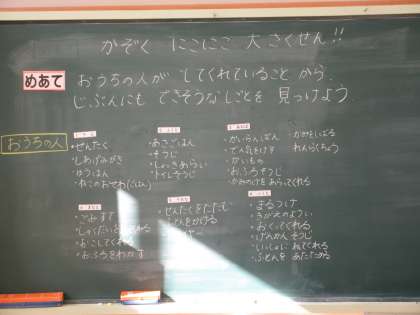 かぞく にこにこ 大さくせん!!
めあて
おうちの人が してくれていることから、
じぶんにも できそうなしごとを 見つけよう
おうちの人
・せんたく
・しあげみがき
・ゆうはん
・ねこのおせわ(ごはん)
・あさごはん
・そうじ
・しょっきあらい
・トイレそうじ
・かいらんばん
・でん気をけす
・かいもの
・おふろそうじ
・かみのけをあらってくれる
・かみをしばる
・れんらくちょう
・ごみすて
・おこしてくれる
・おふろをわかす
・せんたくをたたむ
・まるつけ
・きがえのようい
・おくってくれる
・げんかんそうじ
・いっしょにねてくれる
・ふとんを あたためる